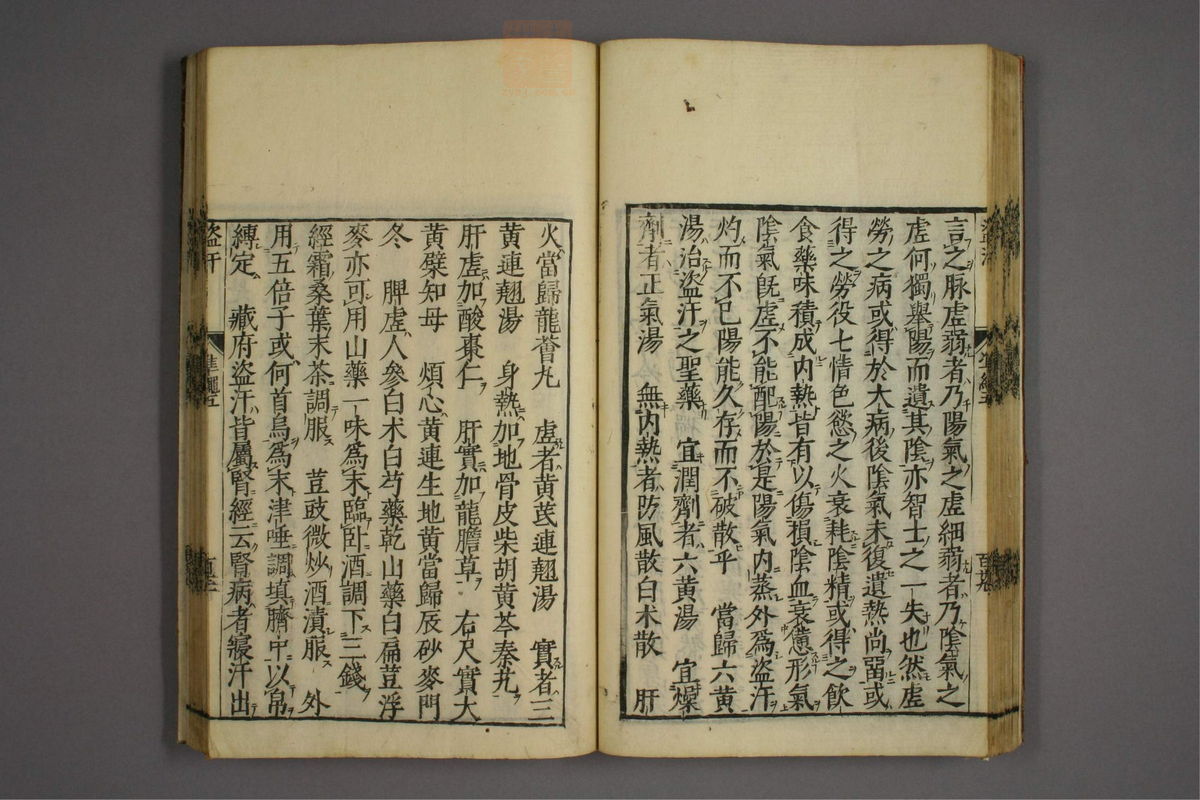 言之脉虚弱者乃陽氣之虚細弱者乃陰氣之
虚何獨舉陽而遺其陰亦智士之一失也然虚
勞之病或得於大病後陰氣未復遺熱尚畱或
得之勞役七情色慾之火衰耗陰精或得之飲
食藥味積成内熱皆有以傷損陰血衰憊形氣
陰氣既虚不能配陽於是陽氣内蒸外爲盗汗
灼而不已陽能久存而不破散乎　當歸六黄
湯治盗汗之聖藥　宜潤劑者六黄湯　宜燥
劑者正氣湯　無内熱者防風散白朮散　肝
火當歸龍薈丸　虚者黄芪連翹湯　實者三
黄連翹湯　身熱加地骨皮柴胡黄芩秦艽
肝虚加酸棗仁　肝實加龍膽草　右尺實大
黄檗知母　煩心黄連生地黄當歸辰砂麥門
冬　脾虚人參白朮白芍藥乾山藥白扁荳浮
麥亦可用山藥一味爲末臨卧酒調下三錢
經霜桑葉末茶調服　荳豉微炒酒漬服　外
用五倍子或何首烏爲末津唾調填臍中以帛
縛定　藏府盗汗皆屬腎經云腎病者寢汗出
盗汗
準繩五